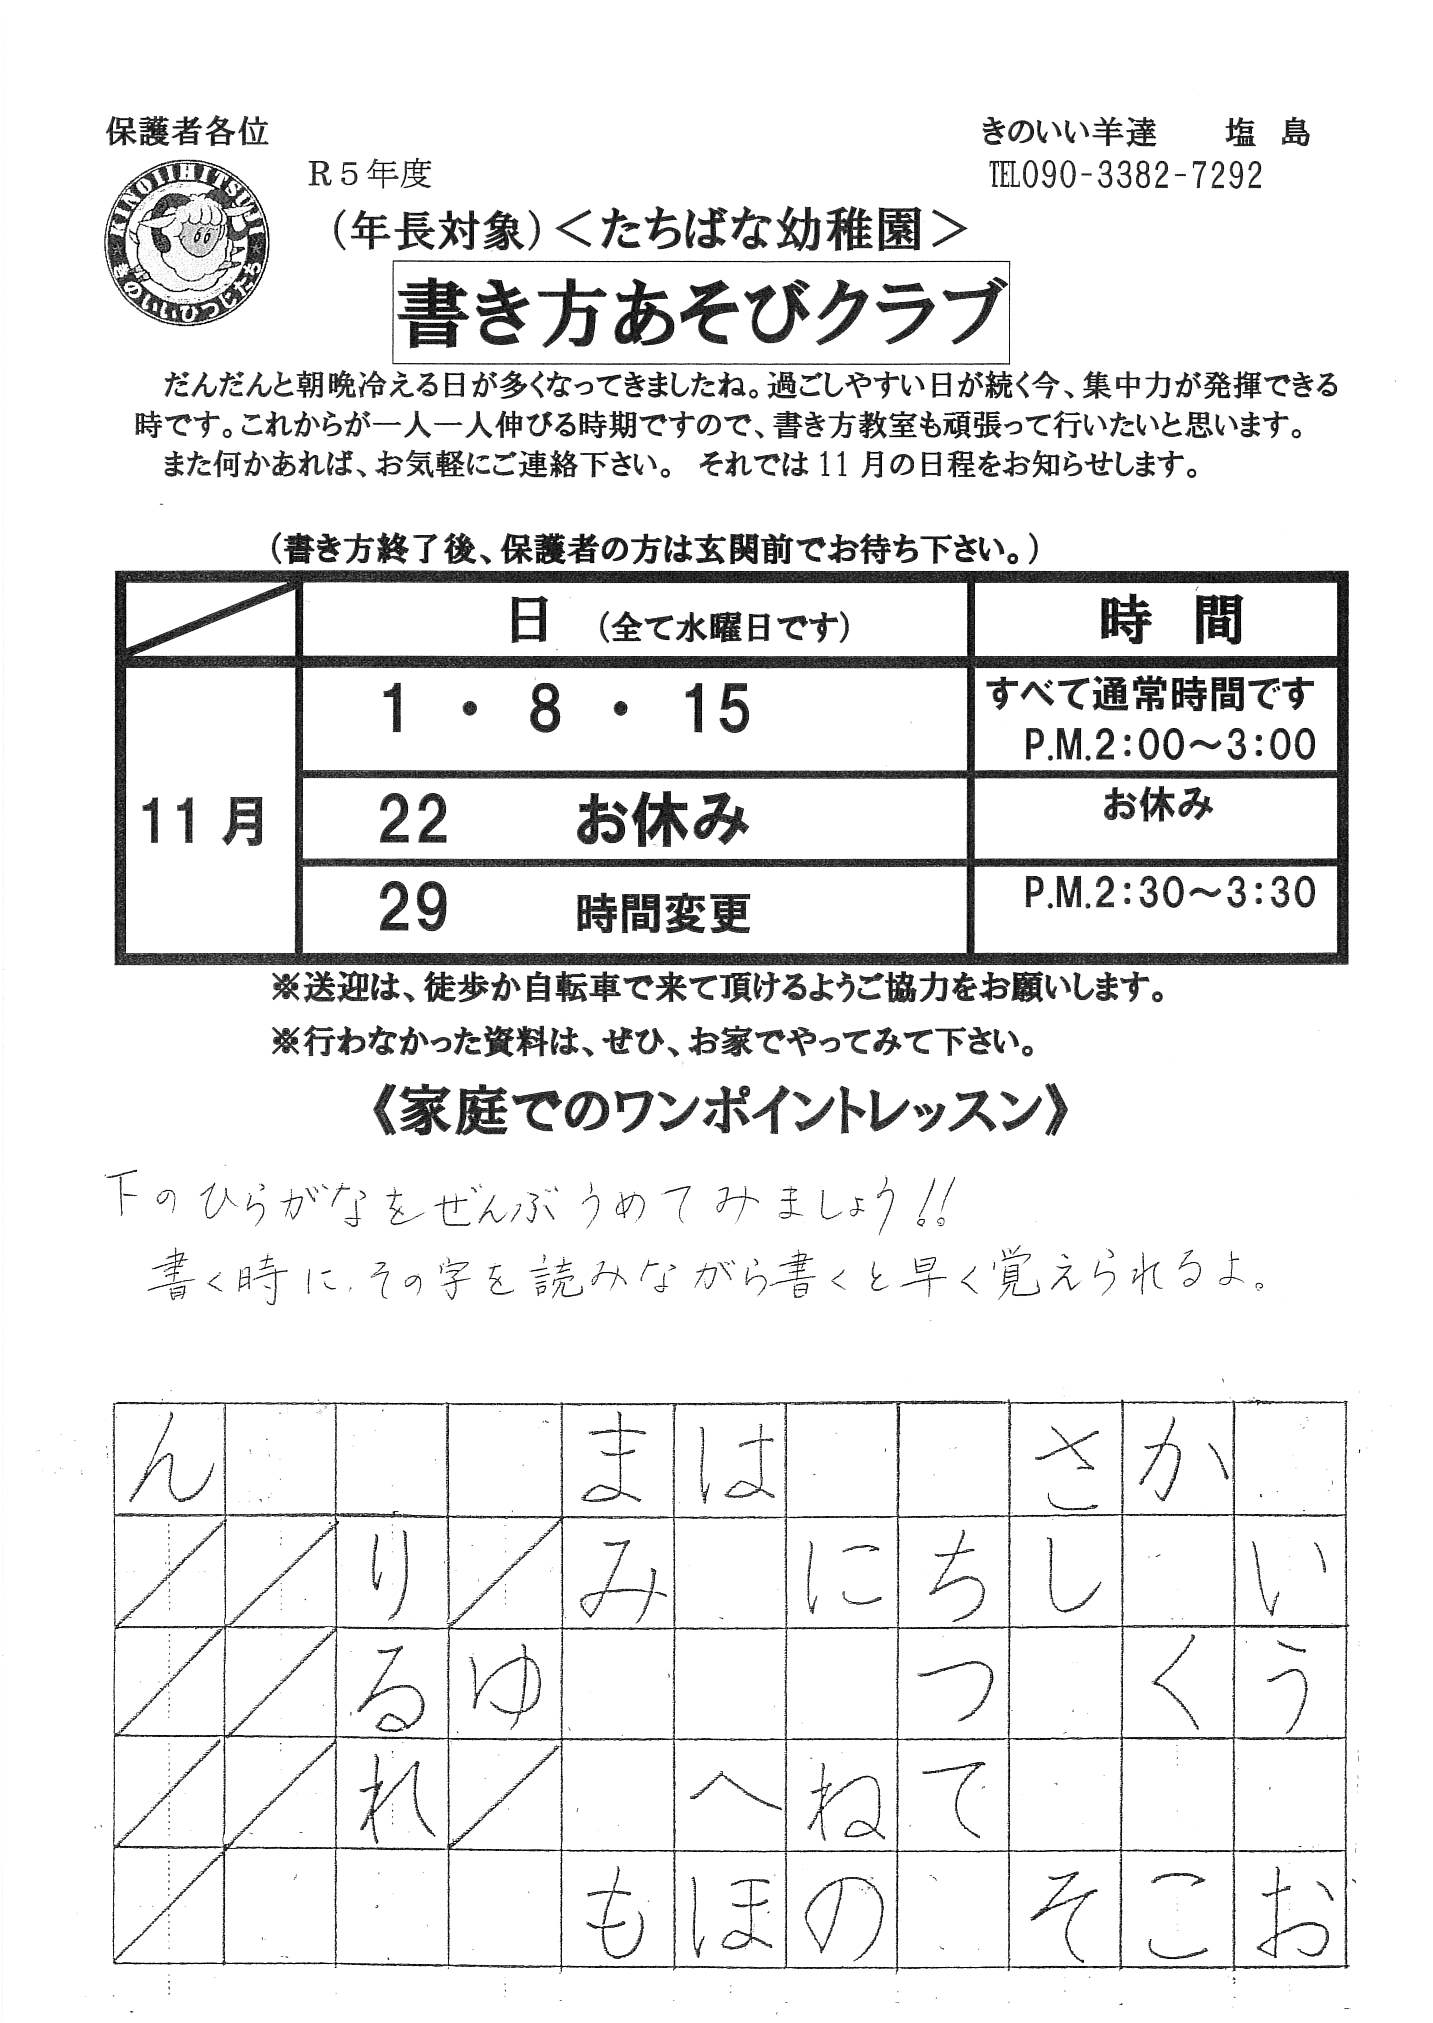 保護者各位
きのいい羊達　塩島
KINOIIHITSUJI
きのいいひつじたち
R5年度
℡090-3382-7292
(年長対象)＜たちばな幼稚園＞
書き方あそびクラブ
だんだんと朝晩冷える日が多くなってきましたね。過ごしやすい日が続く今、集中力が発揮できる
時です。これからが一人一人伸びる時期ですので、書き方教室も頑張って行いたいと思います。
また何かあれば、お気軽にご連絡下さい。 それでは11月の日程をお知らせします。
(書き方終了後、保護者の方は玄関前でお待ち下さい。)
日 (全て水曜日です) 時間
11月
1 ・ 8 ・ 15 すべて通常時間です
P.M.2:00～3:00
22 お休み お休み
29 時間変更 P.M.2:30～3:30
※送迎は、徒歩か自転車で来て頂けるようご協力をお願いします。
※行わなかった資料は、ぜひ、お家でやってみて下さい。
《家庭でのワンポイントレッスン》
下のひらがなをぜんぶうめてみましょう!!
書く時に、その字を読みながら書くと早く覚えられるよ。
ん ま は さ か
り み に ち し い
る ゆ つ く う
れ へ ね て
も ほ の そ こ お